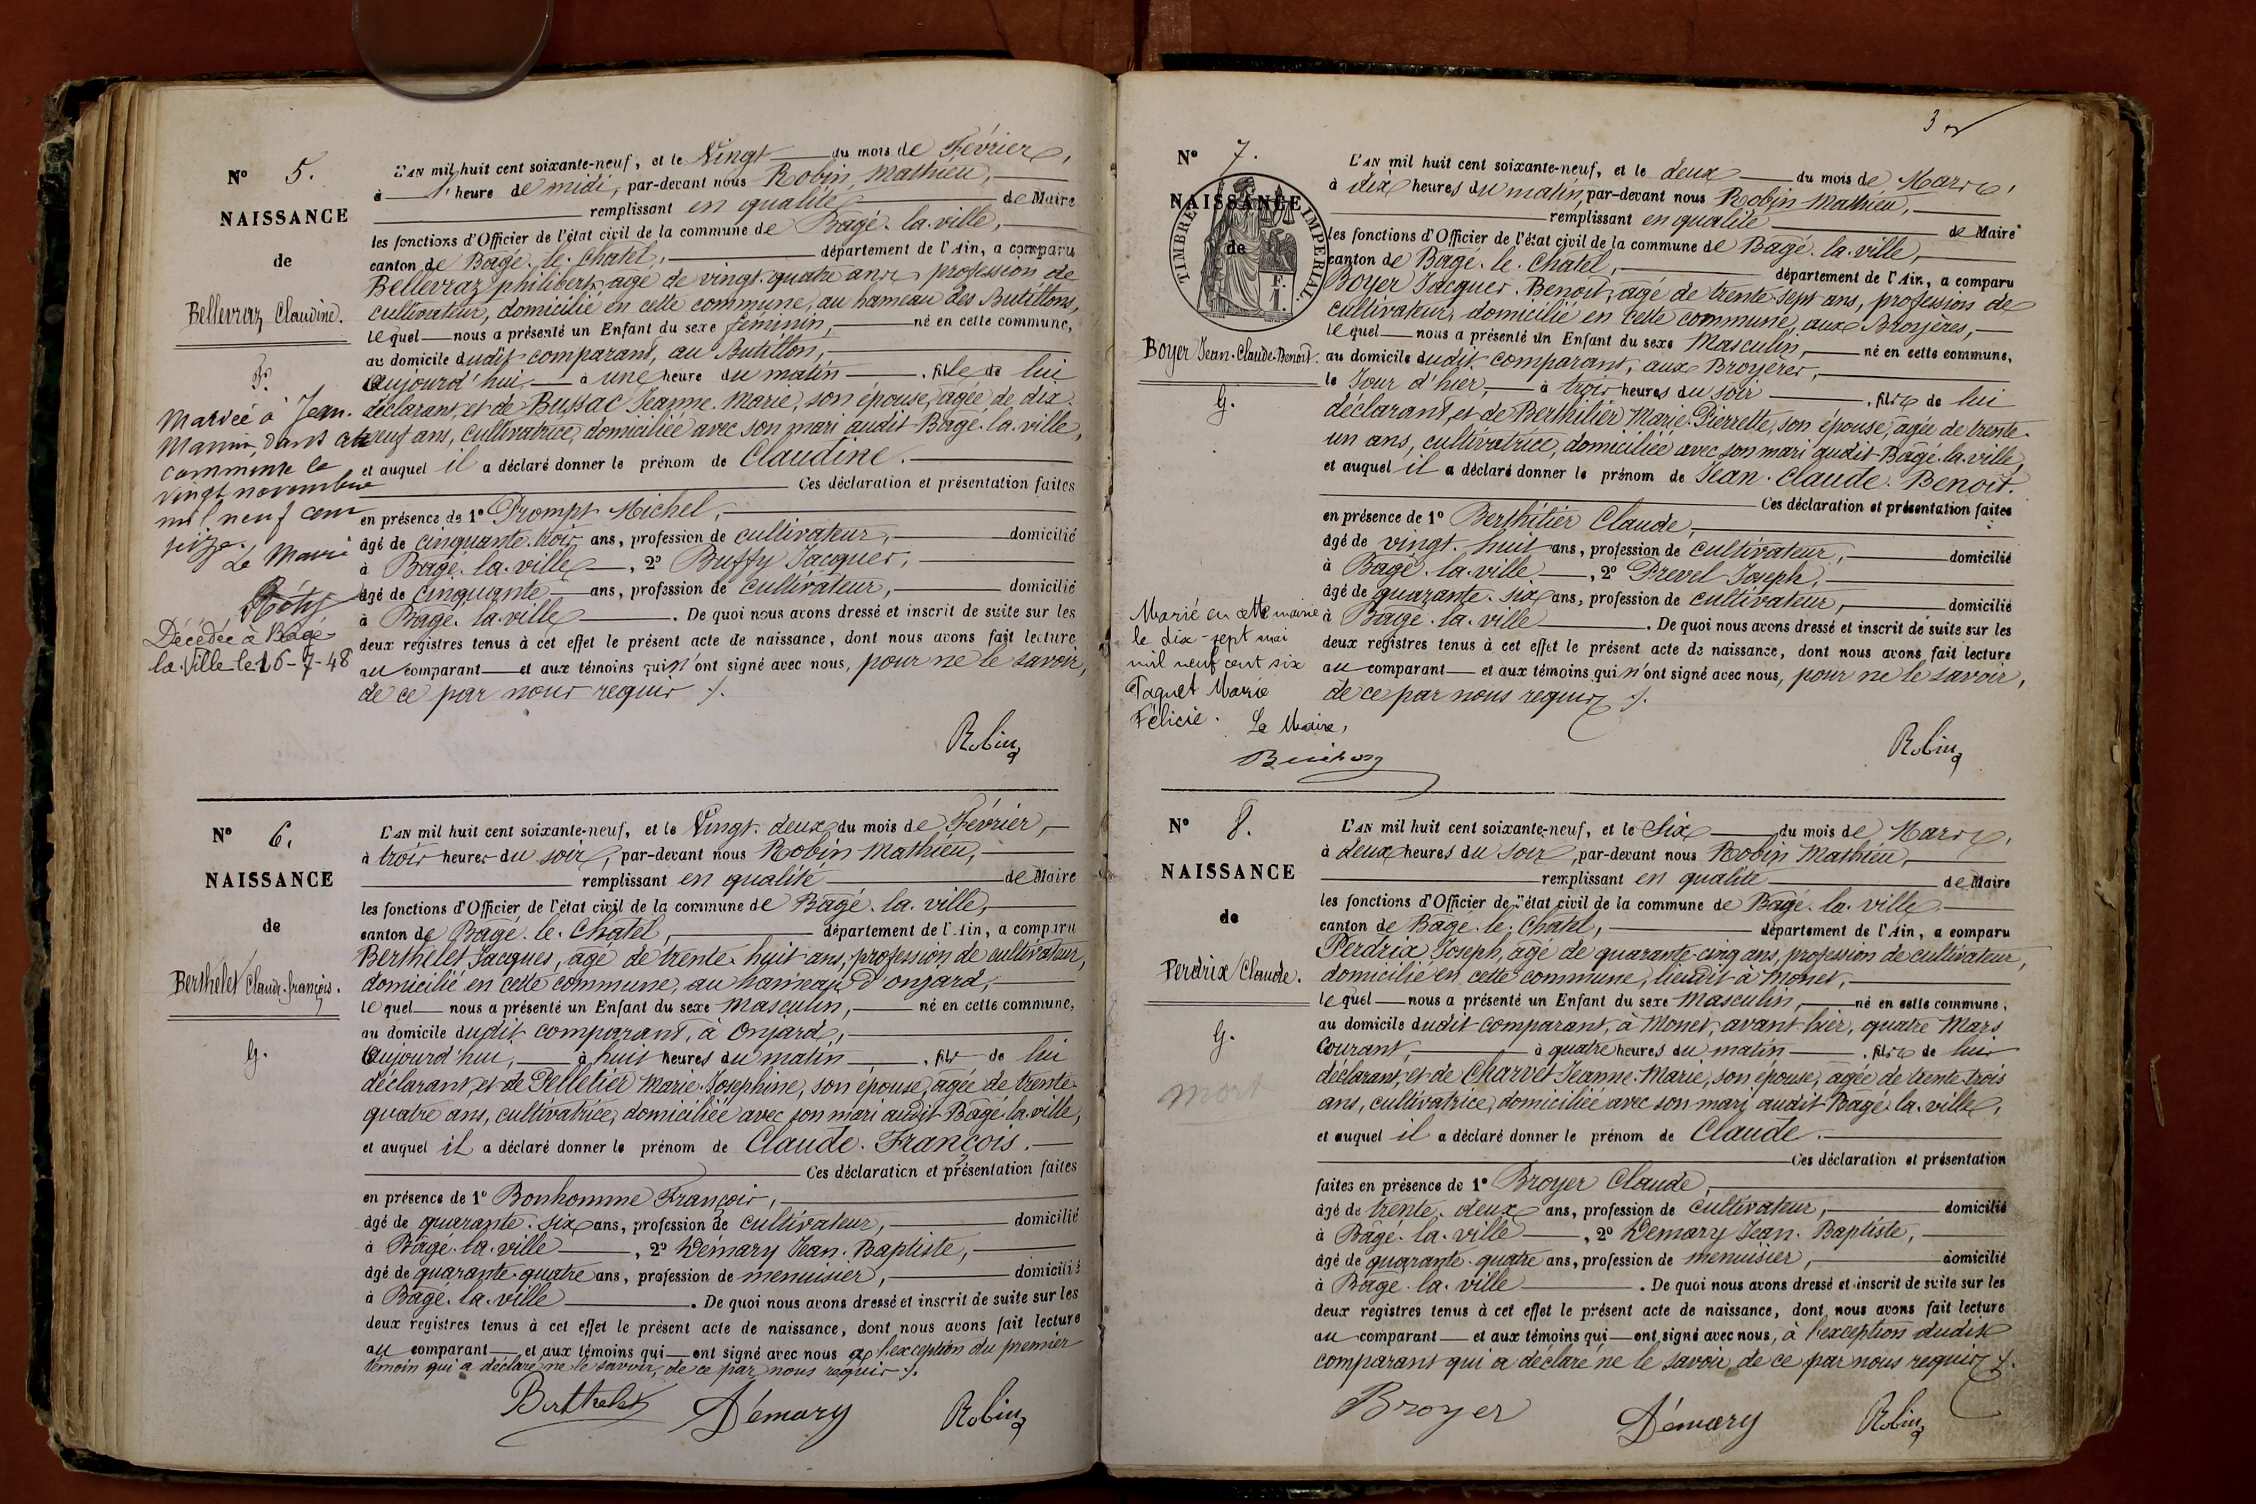 N° 5.
NAISSANCE
de
Bellevraz Claudine.
F.
Mariée à Jean
Manin, dans cette
commune le
vingt novembre
mil neuf cent
seize.
Le Maire
Décédée à Bâgé-
la-Ville le 16-7-48
L'AN mil huit cent soixante-neuf, et le Vingt du mois de Février,
à 1 heure de midi, par-devant nous Robin, Mathieu,
remplissant en qualité de Maire
les fonctions d'Officier de l'état civil de la commune de Bagé-la-ville,
canton de Bagé-le-Chatel, département de l'Ain, a comparu
Bellevraz philibert, agé de vingt-quatre ans, profession de
cultivateur, domicilié en cette commune, au hameau des Butillons,
lequel nous a présenté un Enfant du sexe féminin, né en cette commune,
au domicile dudit comparant, au Butillon,
aujourd'hui à une heure du matin, fille de lui
déclarant, et de Bussac Jeanne-Marie, son épouse, agée de dix-
neuf ans, cultivatrice, domiciliée avec son mari audit Bagé-la-ville,
et auquel il a déclaré donner le prénom de Claudine.
Ces déclaration et présentation faites
en présence de 1° Prompt Michel,
âgé de cinquante-trois ans, profession de cultivateur, domicilié
à Bagé-la-ville, 2° Buffy Jacques,
âgé de cinquante ans, profession de cultivateur, domicilié
à Bagé-la-ville. De quoi nous avons dressé et inscrit de suite sur les
deux registres tenus à cet effet le présent acte de naissance, dont nous avons fait lecture
au comparant et aux témoins qui n'ont signé avec nous, pour ne le savoir,
de ce par nous requis ./.
Robin
N° 6.
NAISSANCE
de
Berthelet Claude-françois.
G.
L'AN mil huit cent soixante-neuf, et le Vingt-deux du mois de Février,
à trois heures du soir, par-devant nous Robin Mathieu,
remplissant en qualité de Maire
les fonctions d'Officier de l'état civil de la commune de Bâgé-la-ville,
canton de Bagé-le-Chatel, département de l'Ain, a comparu
Berthelet Jacques, agé de trente-huit ans, profession de cultivateur,
domicilié en cette commune, au hameau d'onjard,
lequel nous a présenté un Enfant du sexe masculin, né en cette commune,
au domicile dudit comparant, à Onjard,
aujourd'hui, à huit heures du matin, fils de lui
déclarant, et de Pelletier Marie-Josephine, son épouse, agée de trente-
quatre ans, cultivatrice, domiciliée avec son mari audit Bagé-la-ville,
et auquel il a déclaré donner le prénom de Claude-François.
Ces déclaration et présentation faites
en présence de 1° Bonhomme François,
âgé de quarante-six ans, profession de cultivateur, domicilié
à Bâgé-la-ville, 2° Démary Jean-Baptiste,
âgé de quarante-quatre ans, profession de menuisier, domicilié
à Bâgé-la-ville. De quoi nous avons dressé et inscrit de suite sur les
deux registres tenus à cet effet le présent acte de naissance, dont nous avons fait lecture
au comparant et aux témoins qui ont signé avec nous à l'exception du premier
témoin qui a déclaré ne le savoir, de ce par nous requis ./.
Berthelet Démary Robin
3
N° 7.
NAISSANCE
de
TIMBRE IMPERIAL.
F.
1.
Boyer Jean-Claude-Benoit.
G.
Marié en cette mairie
le dix-sept mai
mil neuf cent six
Paquet Marie
Félicie.
Le Maire,
L'AN mil huit cent soixante-neuf, et le deux du mois de Mars,
à dix heures du matin, par-devant nous Robin Mathieu,
remplissant en qualité de Maire
les fonctions d'Officier de l'état civil de la commune de Bagé-la-ville,
canton de Bagé-le-Chatel, département de l'Ain, a comparu
Boyer Jacques-Benoit, agé de trente-sept ans, profession de
cultivateur, domicilié en cette commune, aux Broyères,
lequel nous a présenté un Enfant du sexe Masculin, né en cette commune,
au domicile dudit comparant, aux Broyères,
le Jour d'hier, à trois heures du soir, fils de lui
déclarant, et de Berthilier Marie-Pierrette, son épouse, agée de trente-
un ans, cultivatrice, domiciliée avec son mari audit Bâgé-la-ville,
et auquel il a déclaré donner le prénom de Jean-Claude-Benoit.
Ces déclaration et présentation faites
en présence de 1° Berthilier Claude,
âgé de vingt-huit ans, profession de cultivateur, domicilié
à Bagé-la-ville, 2° Prevel Joseph,
âgé de quarante-six ans, profession de cultivateur, domicilié
à Bagé-la-ville. De quoi nous avons dressé et inscrit de suite sur les
deux registres tenus à cet effet le présent acte de naissance, dont nous avons fait lecture
au comparant et aux témoins qui n'ont signé avec nous, pour ne le savoir,
de ce par nous requis ./.
Robin
N° 8.
NAISSANCE
de
Perdrix Claude.
G.
mort
L'AN mil huit cent soixante-neuf, et le Six du mois de Mars,
à deux heures du soir, par-devant nous Robin Mathieu,
remplissant en qualité de Maire
les fonctions d'Officier de l'état civil de la commune de Bagé-la-ville
canton de Bagé-le-Chatel, département de l'Ain, a comparu
Perdrix Joseph, agé de quarante-cinq ans, profession de cultivateur,
domicilié en cette commune, lieudit à Monet,
lequel nous a présenté un Enfant du sexe Masculin, né en cette commune,
au domicile dudit comparant, à Monet, avant hier, quatre Mars
Courant, à quatre heures du matin, fils de lui
déclarant, et de Charvet Jeanne-Marie, son épouse, agée de trente-trois
ans, cultivatrice, domiciliée avec son mari audit Bagé-la-ville,
et auquel il a déclaré donner le prénom de Claude.
Ces déclaration et présentation
faites en présence de 1° Broyer Claude,
âgé de trente-deux ans, profession de cultivateur, domicilié
à Bâgé-la-ville, 2° Demary Jean-Baptiste,
âgé de quarante-quatre ans, profession de menuisier, domicilié
à Bâgé-la-ville. De quoi nous avons dressé et inscrit de suite sur les
deux registres tenus à cet effet le présent acte de naissance, dont nous avons fait lecture
au comparant et aux témoins qui ont signé avec nous, à l'exception dudit
comparant qui a déclaré ne le savoir de ce par nous requis ./.
Broyer Démary Robin